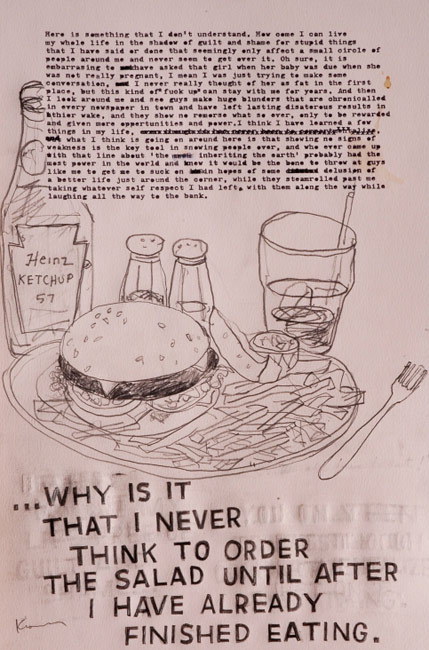 Here is something that I don't understand. How come I can live
my whole life in the shadow of guilt and shame for stupid things
that I have said or done that seemingly only affect a small circle of
people around me and never seem to get over it. Oh sure, it is
embarrasing to have asked that girl when her baby was due when she
was not really pregnant, I mean I was just trying to make some
conversation, I never really thought of her as fat in the first
place, but this kind of"fuck up"can stay with me for years. And then
I look around me and see guys make huge blunders that are chronicalled
in every newspaper in town and have left lasting disaterous results in
thier wake, and they show no remorse what so ever, only to be rewarded
and given more oppertunities and power.I think I have learned a few
things in my life,
what I think is going on around here is that showing no signs of
weakness is the key tool in snowing people over, and who ever came up
with that line about 'the inheriting the earth' probably had the
most power in the world and knew it would be the bone to throw at guys
like me to get me to suck on in hopes of some delusion of
a better life just around the corner, while they steamrolled past me
taking whatever self respect I had left, with them along the way while
laughing all the way to the bank.
Heinz
KETCHUP
57
...WHY IS IT
THAT I NEVER
THINK TO ORDER
THE SALAD UNTIL AFTER
I HAVE ALREADY
FINISHED EATING.